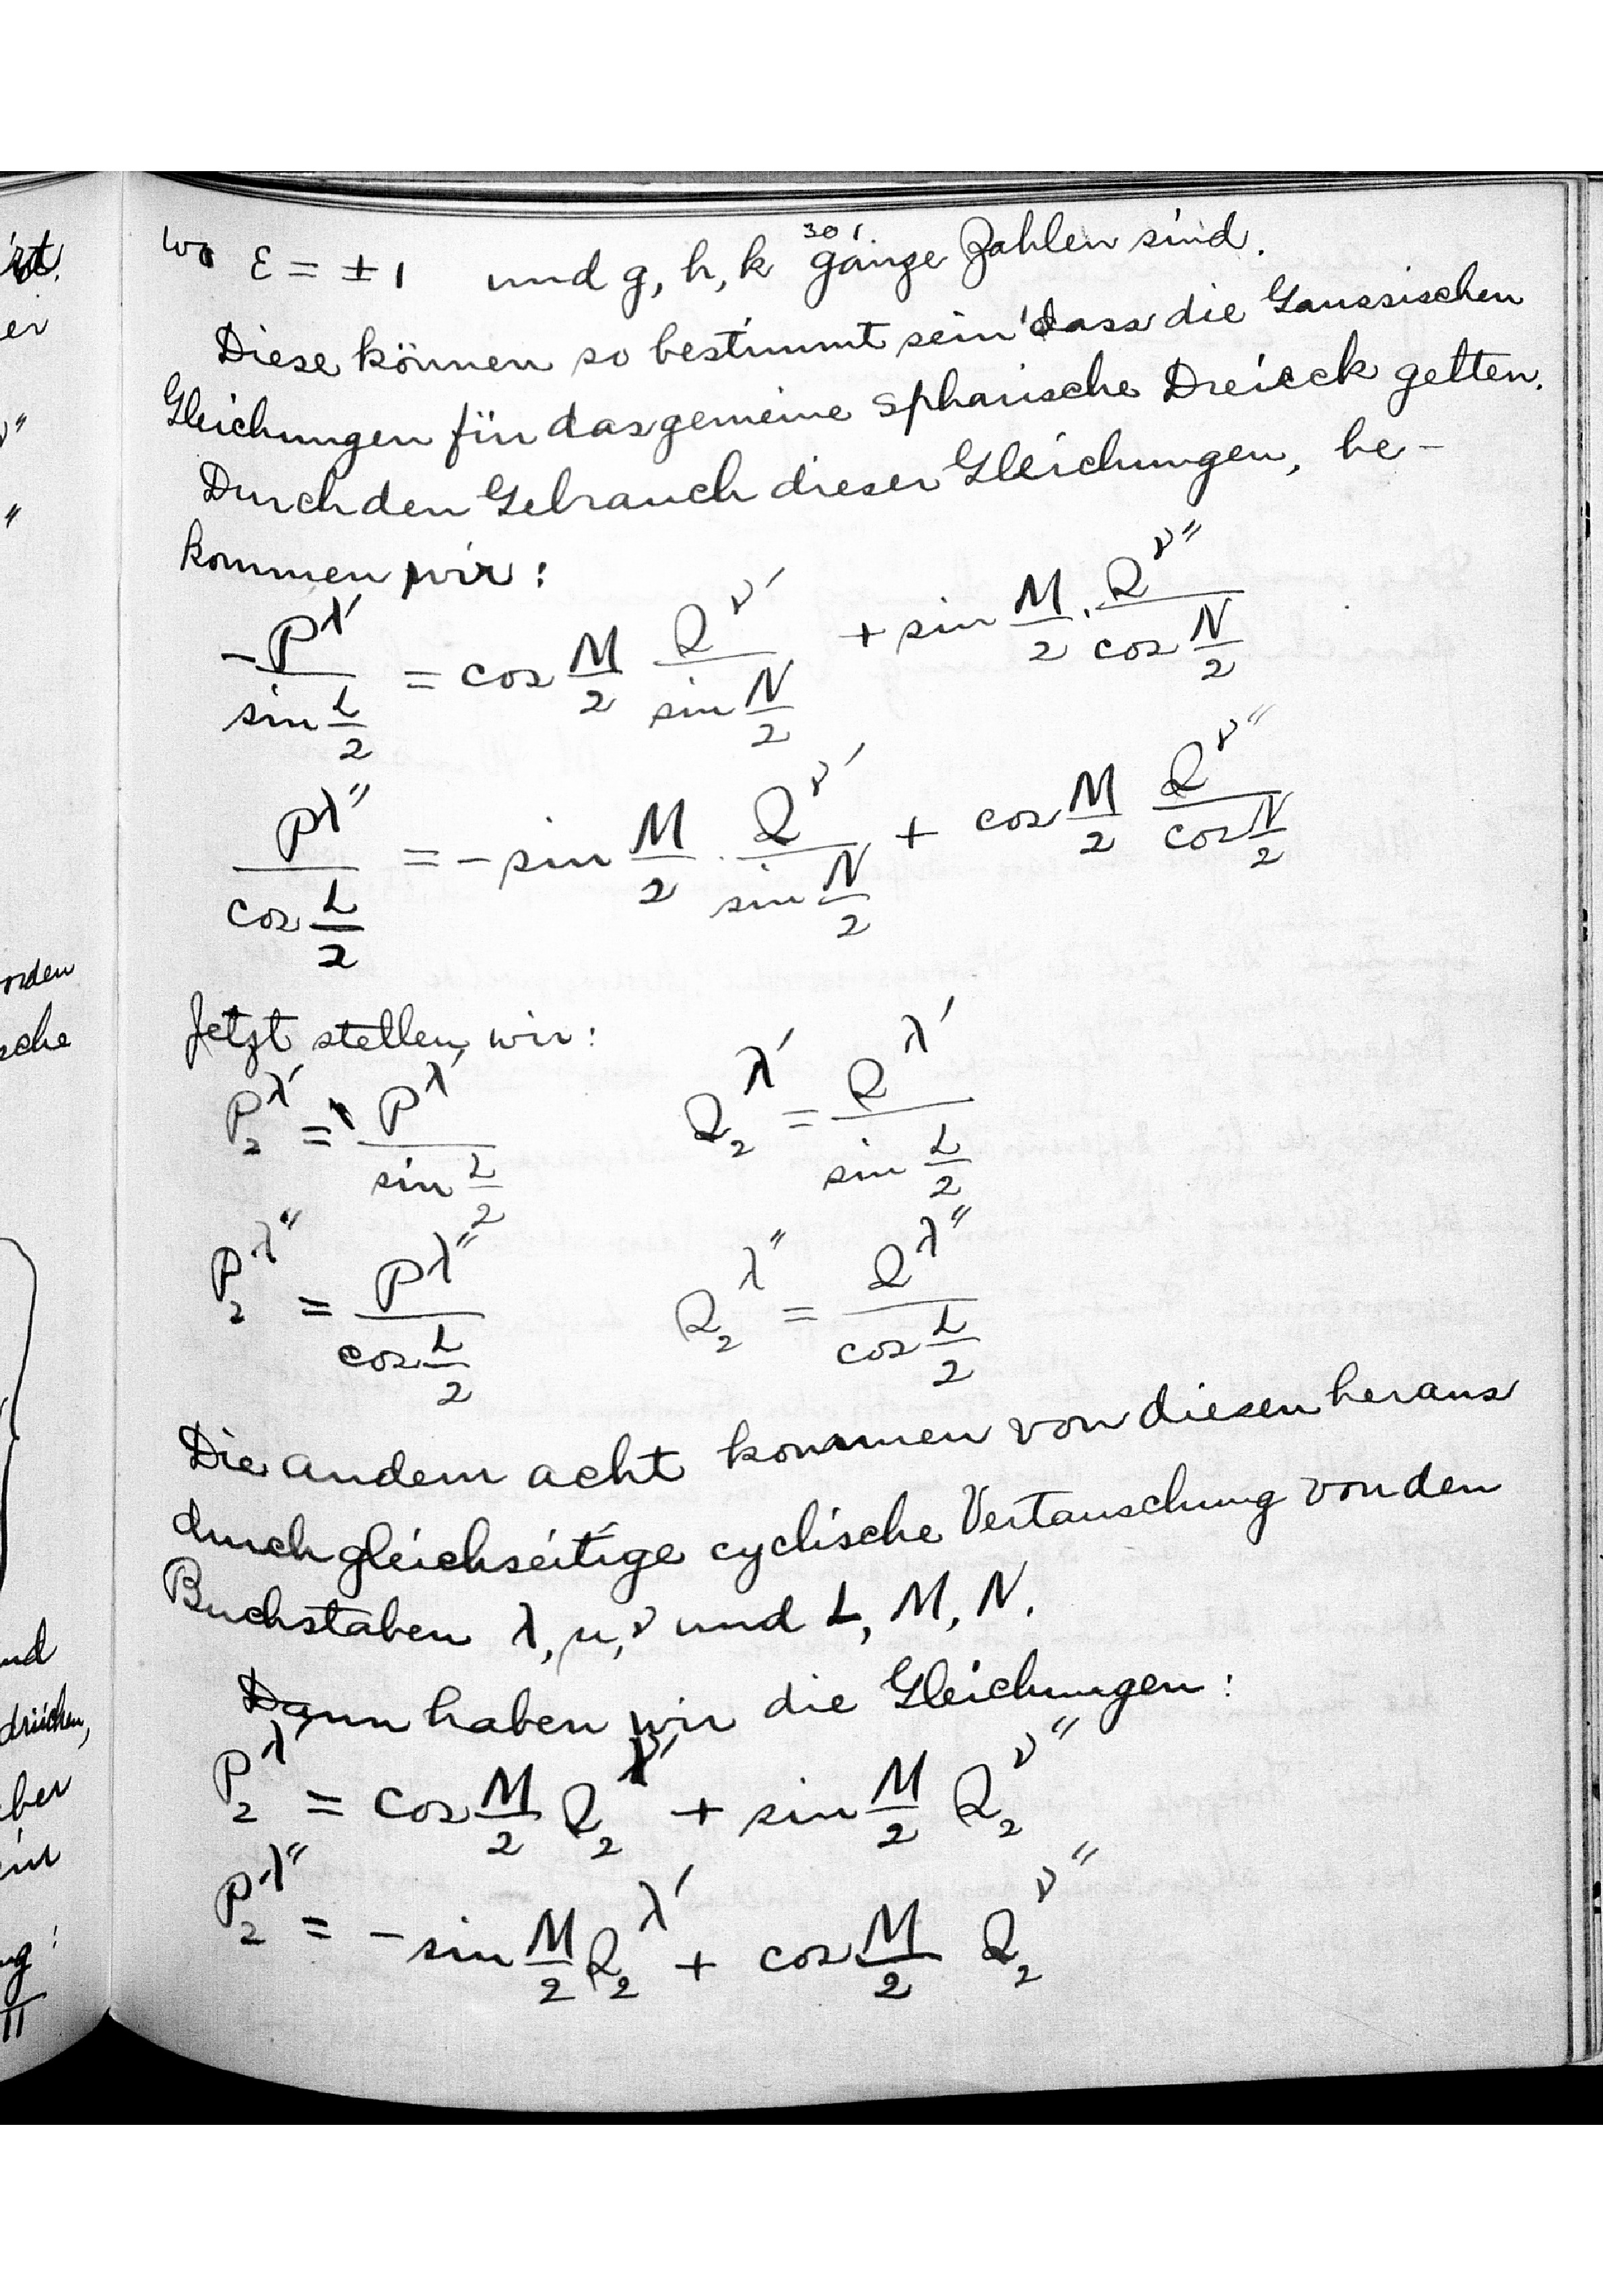 ist.
er
ν"
"
orden
sche
und
drücken,
aber
ein
ng:
π
301
wo ε = ±1 und g, h, k gänze Zahlen sind.
Diese können so bestimmt sein dass die Gaussischen
Gleichungen für das gemeine spharische Dreieck gelten.
Durch den Gebrauch dieser Gleichungen, be-
kommen wir:
-P^λ' / sin L/2 = cos M/2 Q^ν' / sin N/2 + sin M/2 . Q^ν" / cos N/2
P^λ" / cos L/2 = - sin M/2 . Q^ν' / sin N/2 + cos M/2 Q^ν" / cos N/2
Jetzt stellen wir:
P_2^λ' = P^λ' / sin L/2 Q_2^λ' = Q^λ' / sin L/2
P_2^λ" = P^λ" / cos L/2 Q_2^λ" = Q^λ" / cos L/2
Die andern acht kommen von diesen heraus
durch gleichseitige cyclische Vertauschung von den
Buchstaben λ, μ, ν und L, M, N.
Dann haben wir die Gleichungen:
P_2^λ' = cos M/2 Q_2^ν' + sin M/2 Q_2^ν"
P_2^λ" = - sin M/2 Q_2^λ' + cos M/2 Q_2^ν"